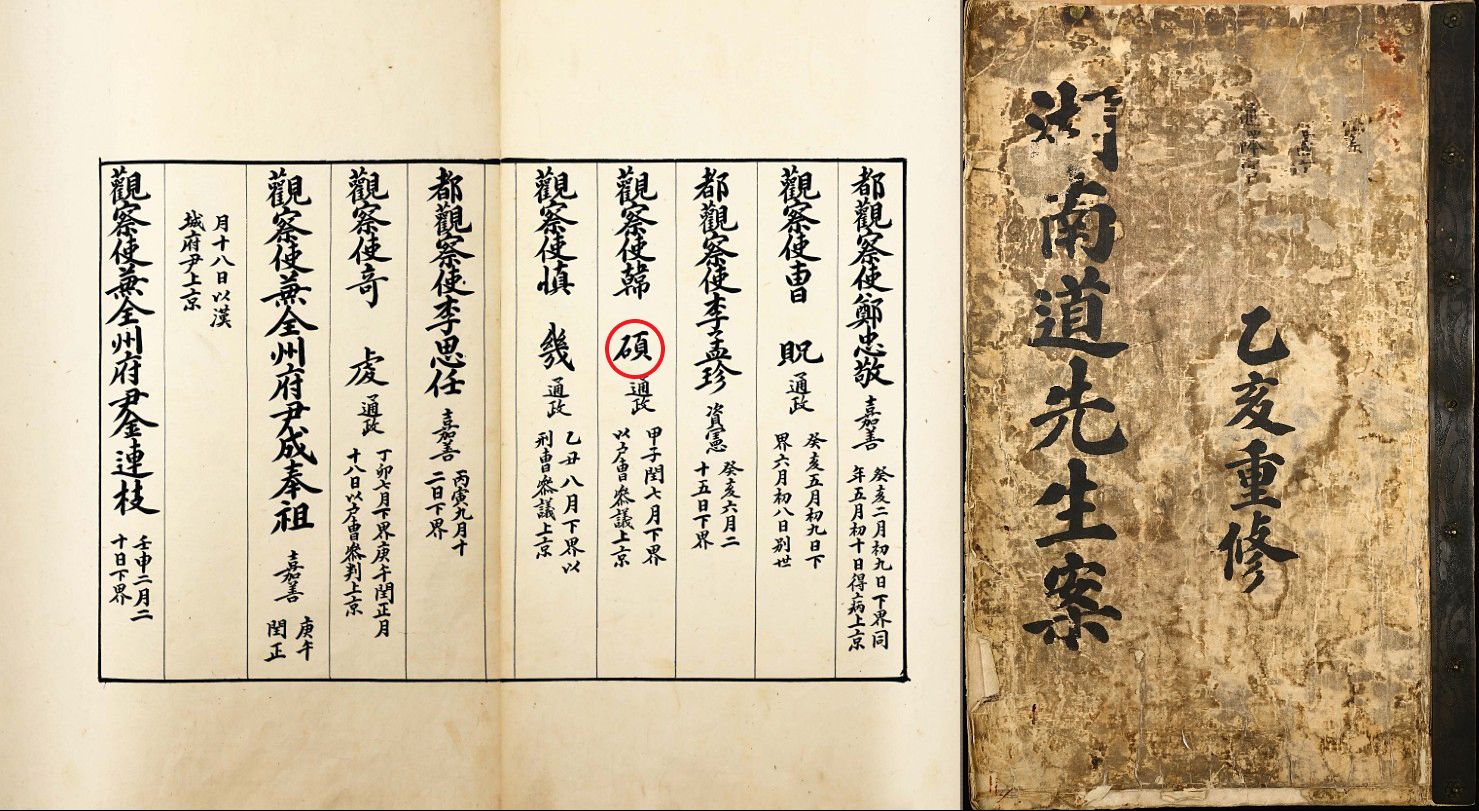 乙亥重修
湖南道先生案
都觀察使鄭忠敬 嘉善 癸亥二月初九日下界同
年五月初十日得病上京
觀察使曹 貺 通政 癸亥五月初九日下
界六月初八日別世
都觀察使李孟珍 資憲 癸亥六月二
十五日下界
觀察使韓 碩 通政 甲子閏七月下界
以戶曹叅議上京
觀察使慎 幾 通政 乙丑八月下界以
刑曹叅議上京
都觀察使李思任 嘉善 丙寅九月十
二日下界
觀察使奇 虔 通政 丁卯七月下界庚午閏正月
十八日以戶曹叅判上京
觀察使兼全州府尹成奉祖 嘉善 庚午
閏正
月十八日以漢
城府尹上京
觀察使兼全州府尹金連枝 壬申二月二
十日下界